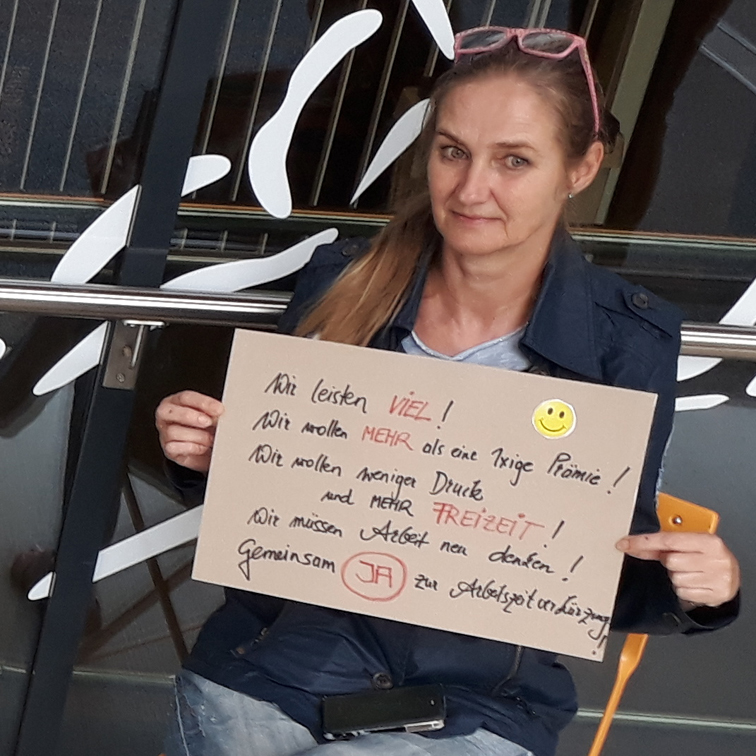 Wir leisten VIEL!
Wir wollen MEHR als eine 1xige Prämie!
Wir wollen weniger Druck
und MEHR FREIZEIT!
Wir müssen Arbeit neu denken!
Gemeinsam JA zur Arbeitszeitverkürzung!